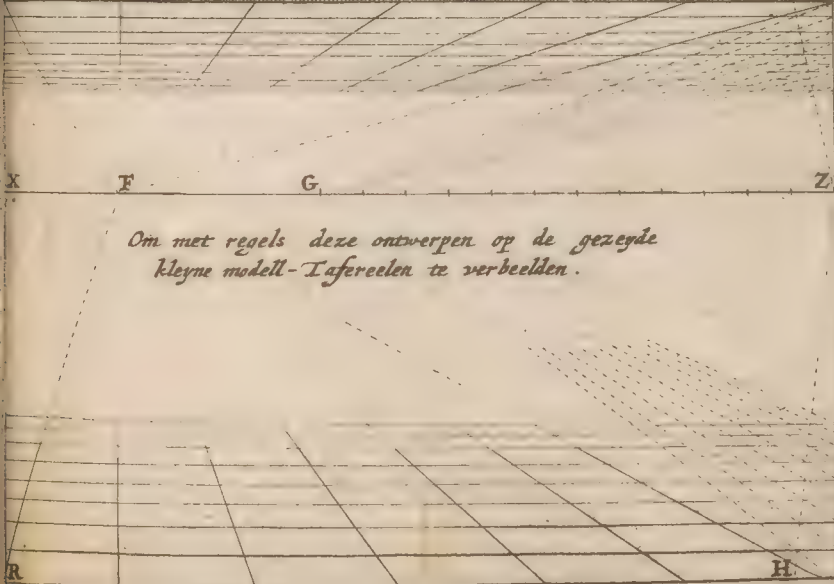 X F G Z
Om met regels deze ontwerpen op de gezeyde
kleyne modell-Tafereelen te verbeelden.
R H